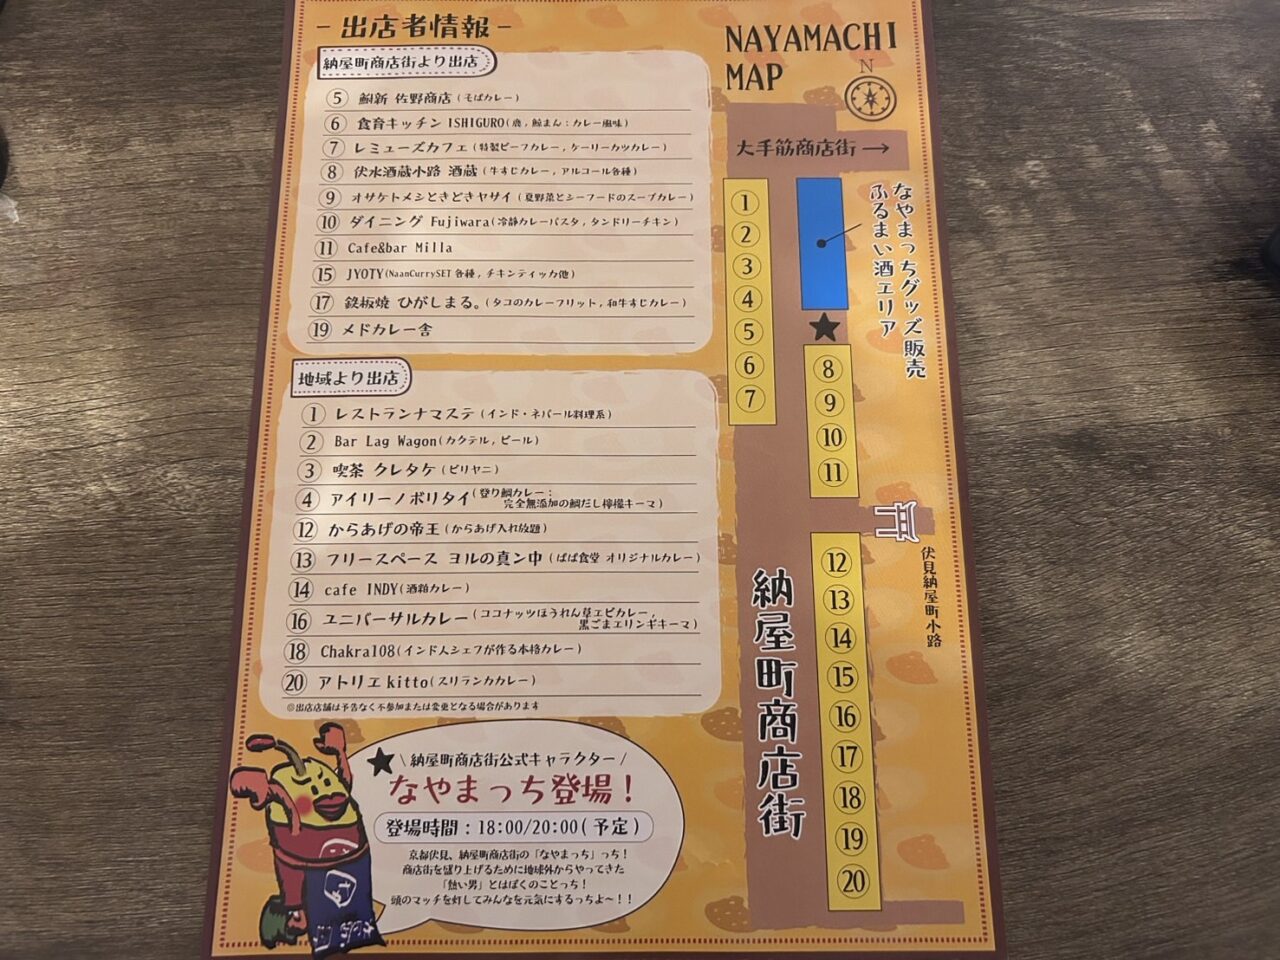 - 出店者情報 -
納屋町商店街より出店
⑤ 鮒新 佐野商店 (そばカレー)
⑥ 食育キッチン ISHIGURO(鹿,鯨まん:カレー風味)
⑦ レミューズカフェ (特製ビーフカレー,ケーリーカツカレー)
⑧ 伏水酒蔵小路 酒蔵 (牛すじカレー,アルコール各種)
⑨ オサケトメシときどきヤサイ (夏野菜とシーフードのスープカレー)
⑩ ダイニング Fujiwara(冷静カレーパスタ,タンドリーチキン)
⑪ Cafe&bar Milla
⑮ JYOTY(NaanCurrySET 各種,チキンティッカ他)
⑰ 鉄板焼 ひがしまる。(タコのカレーフリット,和牛すじカレー)
⑲ メドカレー舎
地域より出店
① レストランナマステ (インド・ネパール料理系)
② Bar Lag Wagon(カクテル,ビール)
③ 喫茶 クレタケ (ビリヤニ)
④ アイリーノボリタイ (登り鯛カレー:
完全無添加の鯛だし檸檬キーマ)
⑫ からあげの帝王 (からあげ入れ放題)
⑬ フリースペース ヨルの真ン中 (ぱぱ食堂 オリジナルカレー)
⑭ cafe INDY(酒粕カレー)
⑯ ユニバーサルカレー (ココナッツほうれん草エビカレー,
黒ごまエリンギキーマ)
⑱ Chakra108(インド人シェフが作る本格カレー)
⑳ アトリエ kitto(スリランカカレー)
※出店店舗は予告なく不参加または変更となる場合があります
★ \ 納屋町商店街公式キャラクター /
なやまっち登場!
登場時間:18:00/20:00(予定)
京都伏見、納屋町商店街の「なやまっち」っち!
商店街を盛り上げるために地球外からやってきた
「熱い男」とはぼくのことっち!
頭のマッチを灯してみんなを元気にするっちよ〜!!
NAYAMACHI
MAP
N
大手筋商店街 →
①
②
③
④
⑤
⑥
⑦
なやまっちグッズ販売
ふるまい酒エリア
★
⑧
⑨
⑩
⑪
伏見納屋町小路
⑫
⑬
⑭
⑮
⑯
⑰
⑱
⑲
⑳
納屋町商店街